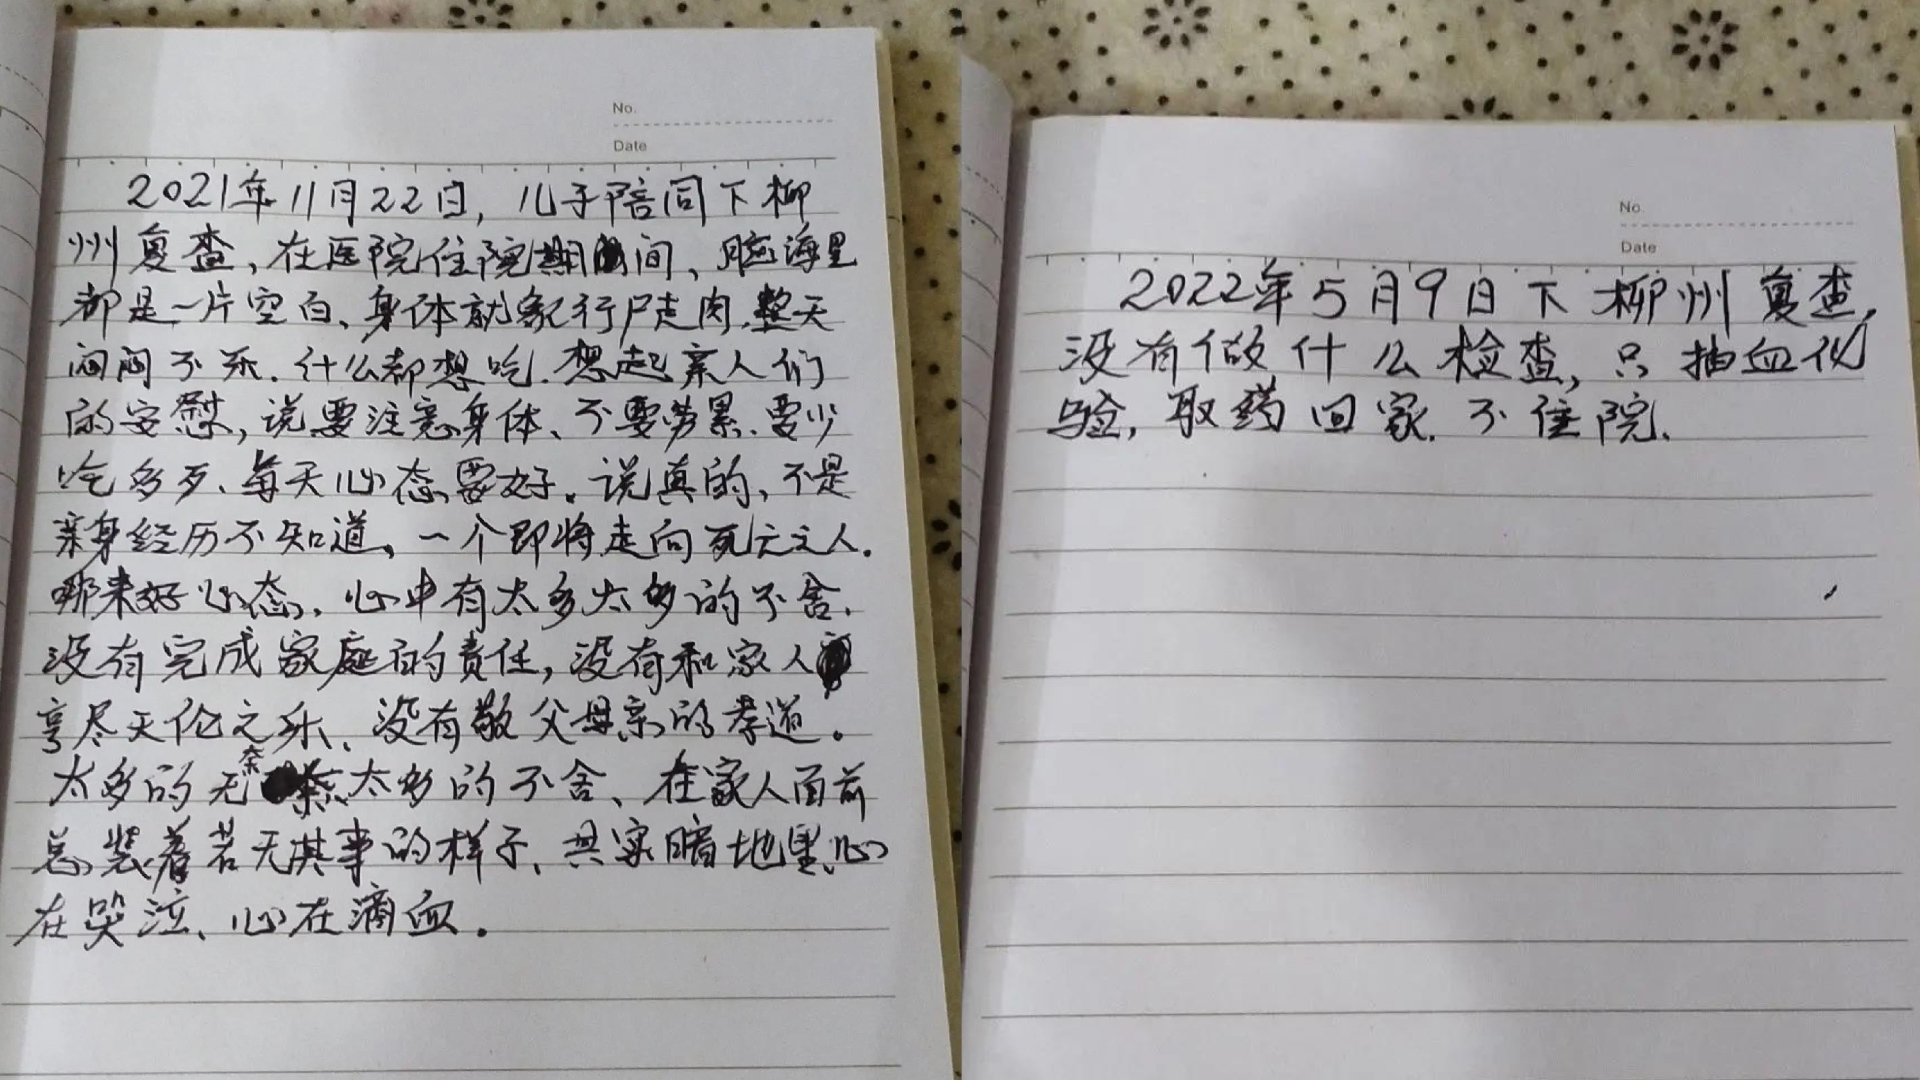 No.
Date
2021年11月22日，儿子陪同下柳
州复查，在医院住院期间、脑海里
都是一片空白、身体就象行尸走肉.整天
闷闷不乐.什么都想吃.想起亲人们
的安慰，说要注意身体、不要劳累.要少
吃多歹、每天心态要好。说真的、不是
亲身经历不知道、一个即将走向死亡之人.
哪来好心态，心中有太多太多的不舍.
没有完成家庭的责任，没有和家人
享尽天伦之乐、没有敬父母亲的孝道。
太多的无奈太多的不舍、在家人面前
总装着若无其事的样子、其实暗地里心
在哭泣、心在滴血。
No.
Date
2022年5月9日下柳州复查，
没有做什么检查，只抽血化
验，取药回家.不住院.